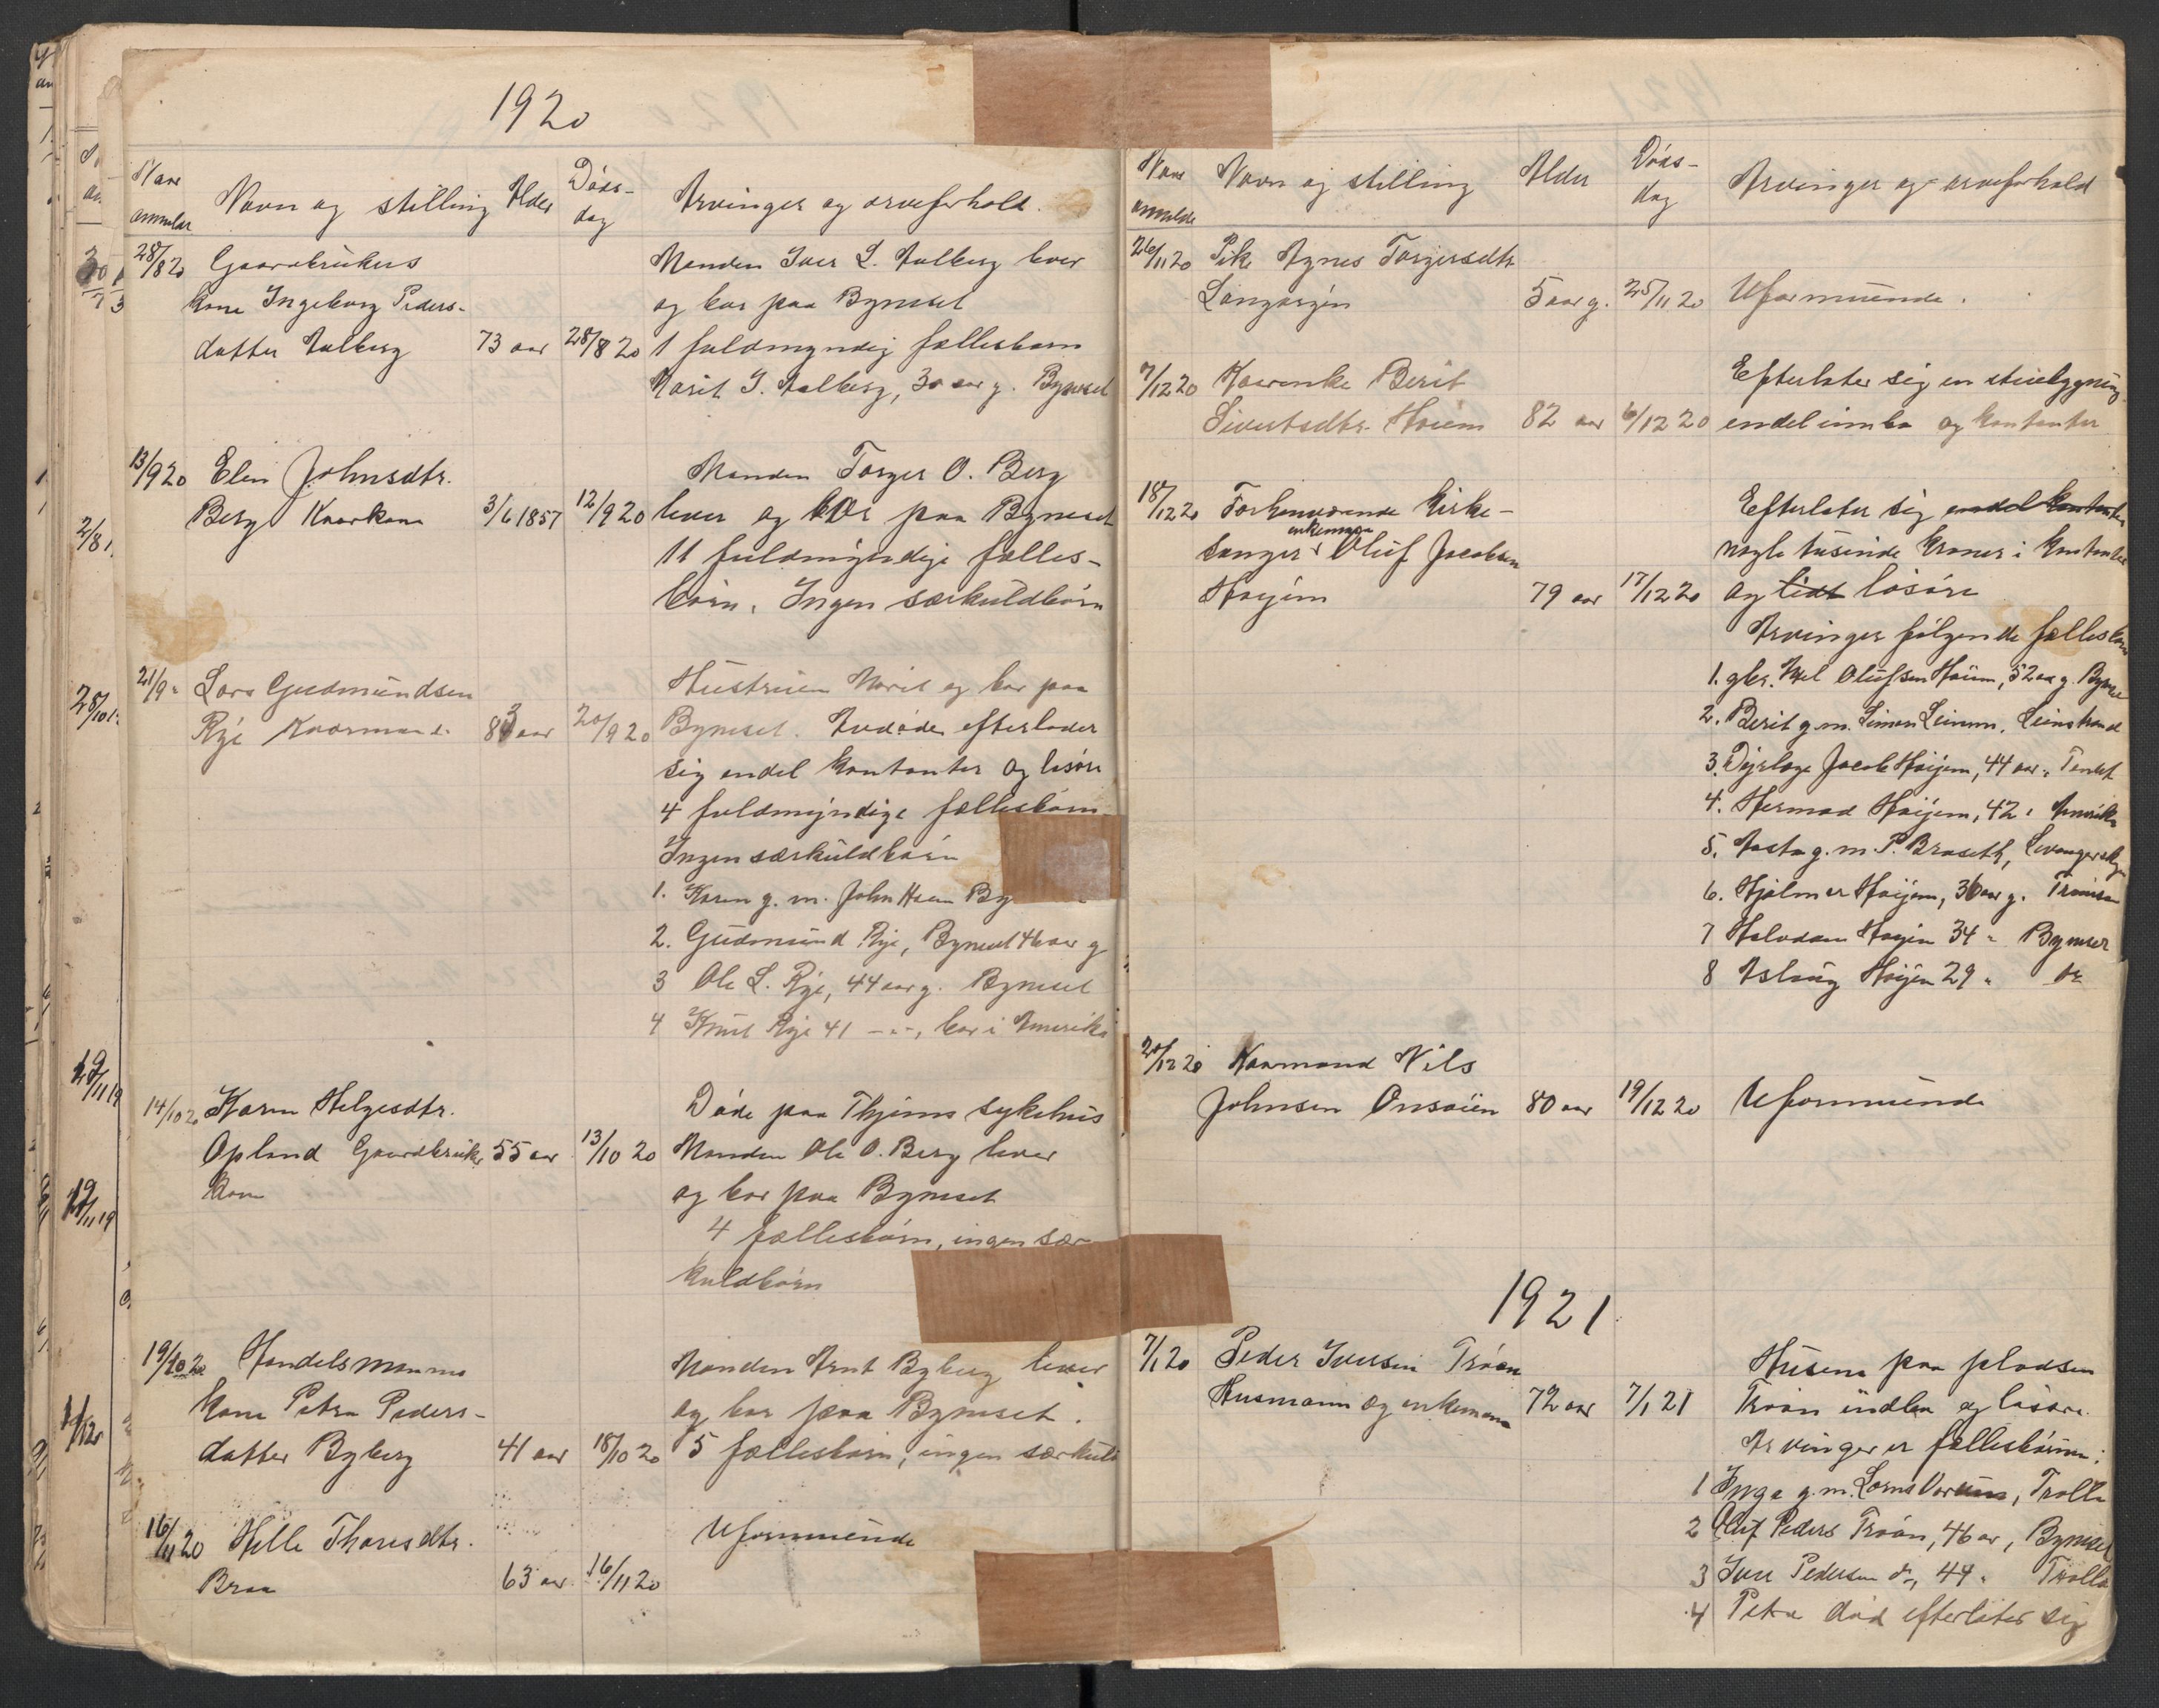 1920
Naar anmeldt
Navn og stilling
Alder
Døds-
dag
Arvinger og arveforhold.
28/8 20 Gaardbrukers
kone Ingeborg Peders-
datter Aalberg 73 aar 28/8 20
Manden Iver L. Aalberg lever
og bor paa Byneset
1 fuldmyndig fællesbarn
Marit I. Aalberg, 30 aar g. Byneset
13/9 20 Elen Johnsdtr.
Berg Kaarkone 3/6 1857 12/9 20
Manden Torger O. Berg
lever og bor paa Byneset
11 fuldmyndige fælles-
børn. Ingen særkuldbørn
21/9 " Lars Gudmundsen
Rye Kaarmand. 83 aar 20/9 20
Hustruen Marit og bor paa
Byneset. Avdøde efterlader
sig endel kontanter og løsøre
4 fuldmyndige fællesbørn
Ingen særkuldbørn
1. Karen g. m. John Haem By
2. Gudmund Rye, Byneset 46 aar g
3 Ole L. Rye, 44 aar g. Byneset
4 Knut Rye 41 -"-, bor i Amerika
14/10 20 Karen Helgesdtr.
Opland Gaardbruker 55 aar 13/10 20
kone
Døde paa Thjems sykehus
Manden Ole O. Berg lever
og bor paa Byneset
4 fællesbørn, ingen sær-
kuldbørn
19/10 20 Handelsmanns
kone Petra Peders-
datter Byberg 41 aar 18/10 20
Manden Arnt Byberg lever
og bor paa Byneset.
5 fællesbørn, ingen særkuld
16/11 20 Helle Tharesdtr.
Braa 63 aar 16/11 20
Uformuende
Naar anmeldt
Navn og stilling
Alder
Døds-
dag
Arvinger og arveforhold
26/11 20 Pike Agnes Torgersdtr
Langørgen 5 aar g. 25/11 20 Uformuende.
7/12 20 Kaarenke Berit
Sivertsdtr. Høiem 82 aar 6/12 20
Efterlater sig en stuebygning
endel innbo og kontanter
18/12 20 Forhenværende kirke-
sanger enkemann Oluf Jacobsen
Høiem 79 aar 17/12 20
Efterlater sig endel kontanter
nogle tusinde kroner i kontanter
og lidt løsøre
Arvinger følgende fællesbørn
1. gbr. Axel Olufsen Høiem, 52 aar g. Byneset
2. Berit g. m. Simon Leinum, Leinstrand
3. Dyrlæge Jacob Høiem, 44 aar "
4. Hermod Høiem, 42 " Amerika
5. Aasta g. m. P. Braseth,
6. Hjalmer Høiem, 36 aar g.
7 Halvdan Høiem 34 " Byneset
8 Aslaug Høiem 29 " do
20/12 20 Kaarmand Nils
Johnsen Onsøien 80 aar 19/12 20 Uformuende
1921
7/1 20 Peder Iversen Trøan
Husmann og enkemann 72 aar 7/1 21
Husene paa pladsen
Trøan indbo og løsøre.
Arvinger er fællesbørnene:
1 Inga g. m. , Trolla
2 Oluf Peders Trøan, 46 aar, Byneset
3 Iver Pedersen do, 44 " Trolla
4 Petra død efterlater sig